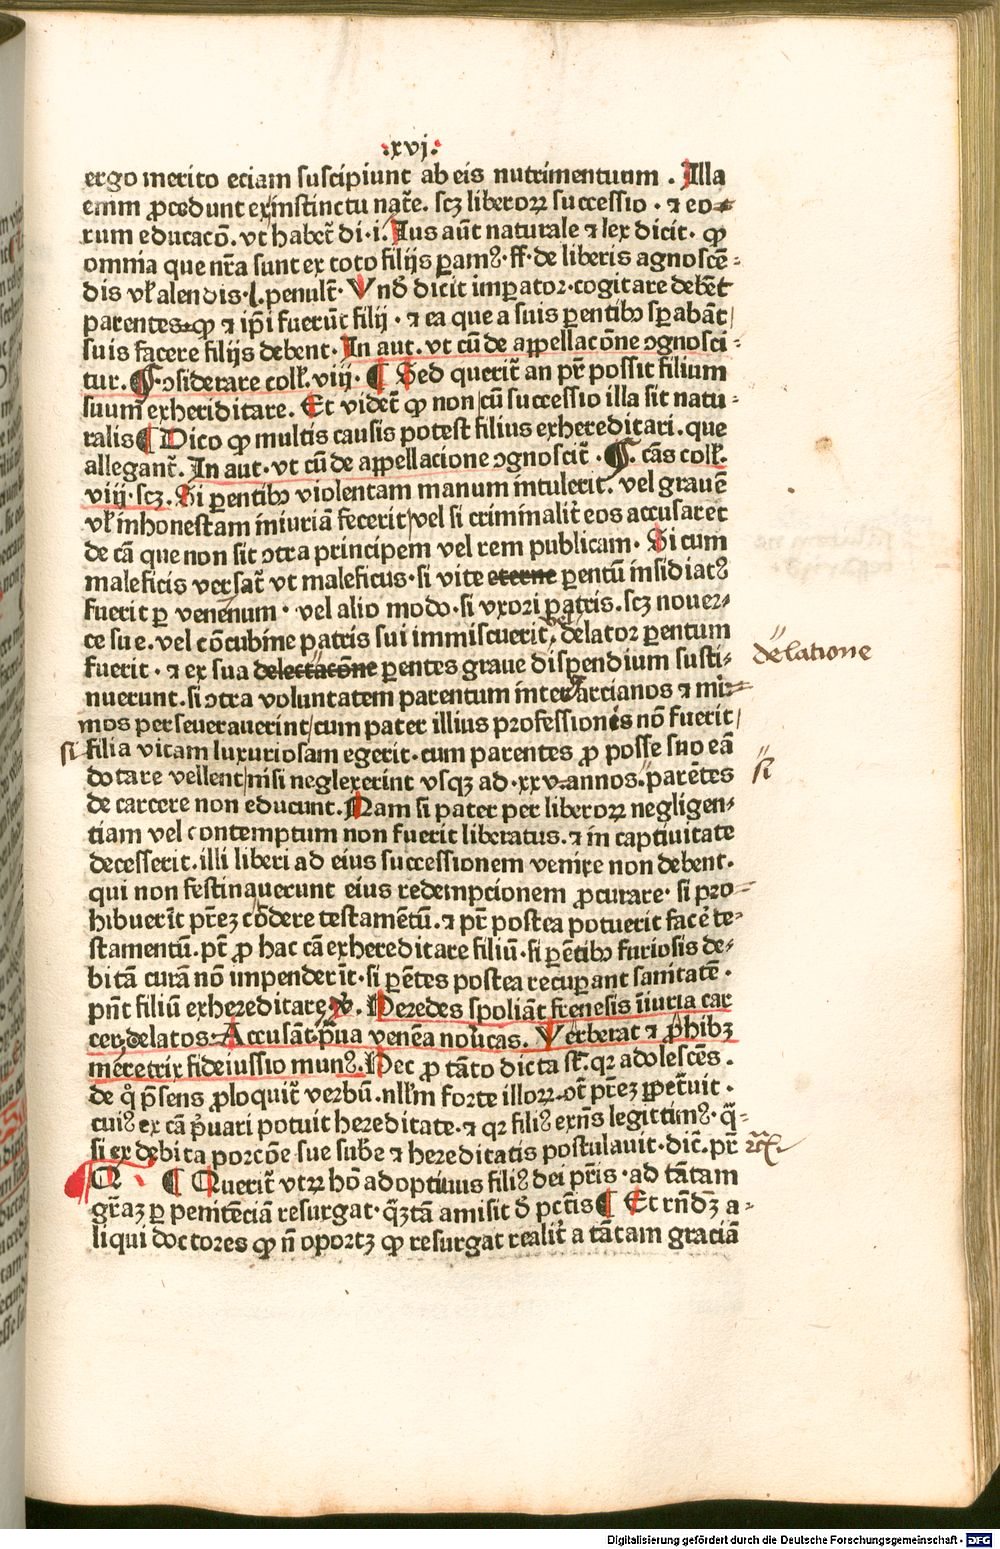 .xvj.
ergo merito eciam suscipiunt ab eis nutrimentum . Illa
enim ꝓcedunt ex instinctu nat̄e. scꝫ liberoꝝ successio · ⁊ eo-
rum educacōꝫ. vt habet̄ di·i. Ius aūt naturale ⁊ lex dicit· ꝙ
omnia que nr̄a sunt ex toto filijs ꝑamꝰ· ff· de liberis agnoscē-
dis vl̓ alendis·l. penult̄· Vnd̓ dicit imꝑator·cogitare debēt
parentes·ꝙ ⁊ ip̄i fuerūt filij · ⁊ ea que a suis ꝑentibꝰ sꝑabāt/
suis facere filijs debent· In aut. vt cū de aꝑpellacōne ↄgnosci-
tur. ¶·ↄsiderare coll̓. viij· ¶ Sed querit̄ an pr̄ possit filium
suum exheriditare. Et videt̄ ꝙ non/cū successio illa sit natu-
ralis¶ Dico ꝙ multis causis potest filius exhereditari. que
allegant̄. In aut· vt cū de aꝑpellacione ↄgnoscit̄ · ¶. cās coll̓.
viij· scꝫ. Si ꝑentibꝰ violentam manum intulerit. vel grauē
vl̓ inhonestam iniuriā fecerit/vel si criminalit̓ eos accusaret
de cā que non sit ↄtra principem vel rem publicam· Si cum
maleficis versat̄ vt maleficus·si vite eterne ꝑentū insidiatꝰ
fuerit ꝑ venenum· vel alio modo·si vxori patris. scꝫ nouer-
ce sue. vel cōcubine patris sui immiscuerit, vel delator ꝑentum
delatione
fuerit · ⁊ ex sua delectacōne ꝑentes graue dispendium susti-
nuerunt. si ↄtra voluntatem parentum inter arcianos ⁊ mi-
mos perseuerauerint/cum pater illius professionis nō fuerit/
si filia vitam luxuriosam egerit·cum parentes ꝓ posse suo eā
dotare vellent/nisi neglexerint vsqꝫ ad·xxv·annos. parētes
si
de carcere non educunt. Nam si pater per liberoꝝ negligen-
tiam vel contemptum non fuerit liberatus. ⁊ in captiuitate
decesserit. illi liberi ad eius successionem venire non debent.
qui non festinauerunt eius redempcionem ꝓcurare· si pro-
hibuerīt pr̄eꝫ cōdere testamētū. ⁊ pr̄ postea potuerit facē te-
stamentū. pt̄ ꝓ hac cā exhereditare filiū· si ꝑētibꝰ furiosis de-
bitā curā nō impenderīt·si ꝑētes postea recuꝑant sanitatē·
pn̄t filiū exhereditare. Heredes spoliāt frenesis īiuria car
cer. delatos· Accusāt·pn̄a venēa nou̓cas. Verberat ⁊ ꝓhibꝫ
meretrix fideiussio munꝰ. Nec ꝓ tāto dicta st̄. qꝛ adolescēs .
de qͦ p̄sens ꝓloquit̄ verbū. nll̓m forte illoꝝ ↄt̄ pr̄eꝫ ꝑpet̄uit ·
cuiꝰ ex cā p̓uari potuit hereditate·⁊ qꝛ filiꝰ exn̄s legittimꝰ· qͣ-
si ex debita porcōe sue subē ⁊ hereditatis postulauit·dic̄. pr̄
¶ Querit̄ vtꝝ hō adoptiuus filiꝰ dei pr̄is ·ad tātam
gr̄aꝫ ꝑ penitēciā resurgat·qͣꝫtā amisit ꝑ pctīs¶ Et rn̄dꝫ a-
liqui doctores ꝙ n̄ oportꝫ ꝙ resurgat realit̓ a tātam graciā
Digitalisierung gefördert durch die Deutsche Forschungsgemeinschaft - DFG